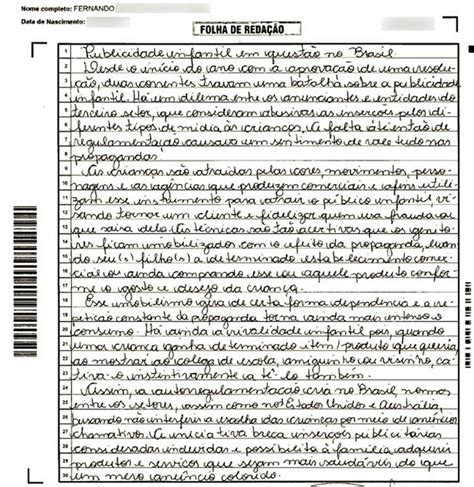 Nome completo: FERNANDO
Data de Nascimento:
FOLHA DE REDAÇÃO
1 Publicidade infantil em questão no Brasil.
2 Desde o início do ano com a aprovação de uma resolu-
3 ção, duas correntes travam uma batalha sobre a publicidade
4 infantil. Há um dilema entre os anunciantes e entidades do
5 terceiro setor, que consideram abusivas as inserções pelos di-
6 ferentes tipos de mídia às crianças. A falta até então de
7 regulamentação causava um sentimento de vale tudo nas
8 propagandas.
9 As crianças são atraídas pelas cores, movimentos, perso-
10 nagens e as agências que produzem comerciais e afins utili-
11 zam esse instrumento para atrair o público infantil, vi-
12 sando tornar um cliente e fidelizar quem usa fralda ou
13 que saiu dela. As técnicas são tão acertivas que os genito-
14 res ficam imobilizados com o efeito da propaganda, levan-
15 do seu(s) filho(s) a determinado estabelecimento comer-
16 cial ou ainda comprando esse ou aquele produto confor-
17 me o gosto e desejo da criança.
18 Esse imobilismo gera de certa forma dependência e a re-
19 petição constante da propaganda torna ainda mais intenso o
20 consumo. Há ainda a rivalidade infantil pois, quando
21 uma criança ganha determinado item/produto que queria,
22 ao mostrar ao colega de escola, amiguinho ou vizinho, ca-
23 tiva-o instintivamente a tê-lo também.
24 Assim, a autorregulamentação cria no Brasil, normas
25 entre os setores, assim como nos Estados Unidos e Austrália,
26 buscando não interferir a escolha das crianças por meio de anúncios
27 chamativos. A iniciativa breca inserções publicitárias
28 consideradas indevidas e possibilita à família adquirir
29 produtos e serviços que sejam mais saudáveis do que
30 um mero anúncio colorido.